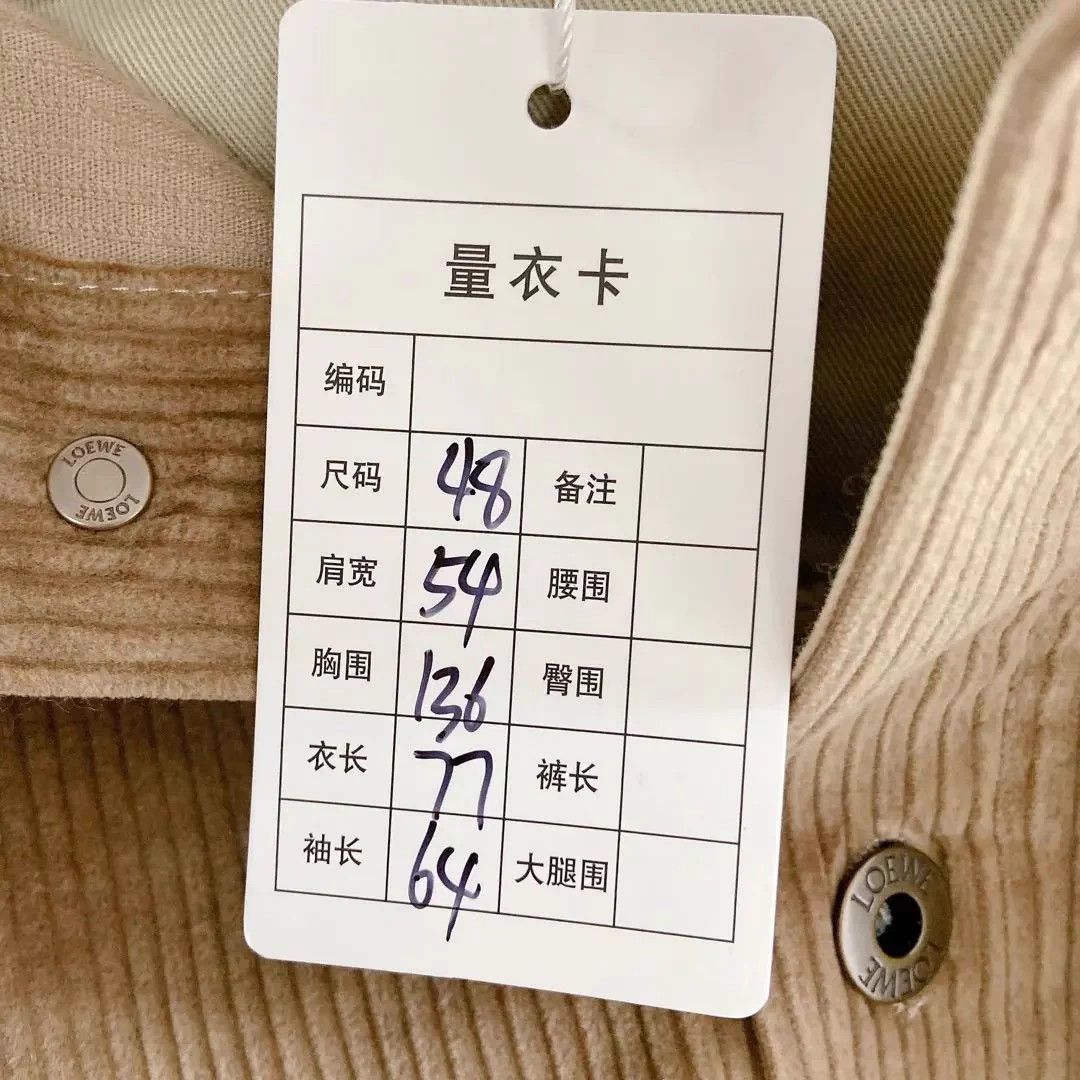 量衣卡
编码
尺码 48 备注
肩宽 54 腰围
胸围 136 臀围
衣长 77 裤长
袖长 64 大腿围
LOEWE
LOEWE
LOEWE
LOEWE